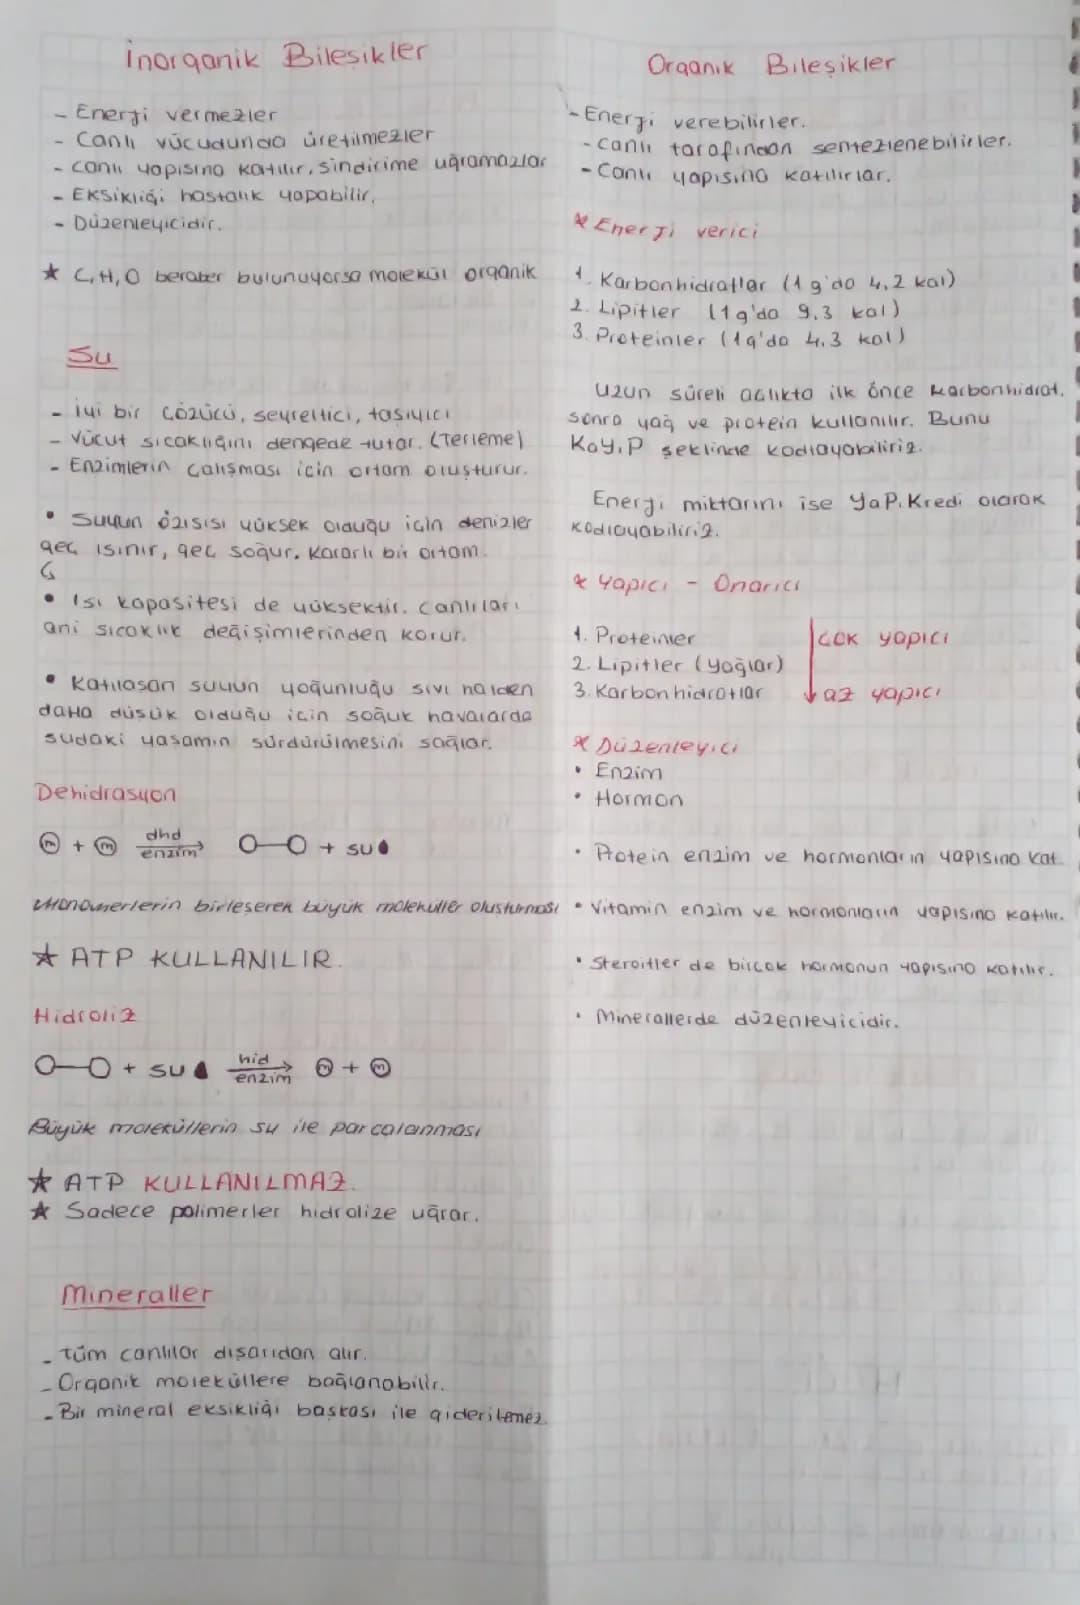 İnorganik Bileşikler
- Enerji vermezler
- Canlı vücudunda üretilmezler
- Canlı yapısına katılır, sindirime uğramazlar
- Eksikliği hastalık yapabilir.
- Düzenleyicidir.
★ C, H, O beraber bulunuyorsa molekül organik
Su
- İyi bir çözücü, seyreltici, taşıyıcı
- Vücut sıcaklığını dengede tutar. (Terleme)
- Enzimlerin çalışması için ortam oluşturur.
• Suyun özısısı yüksek olduğu için denizler
geç ısınır, geç soğur. Kararlı bir ortam.
• Isı kapasitesi de yüksektir. Canlıları
ani sıcaklık değişimlerinden korur.
• Katılaşan suyun yoğunluğu sıvı halden
daha düşük olduğu için soğuk havalarda
sudaki yaşamın sürdürülmesini sağlar.
Dehidrasyon
m + m dhd enzim → O-O + su
Monomerlerin birleşerek büyük moleküller oluşturması
★ ATP KULLANILIR.
Hidroliz
O-O + su hid enzim → m + m
Büyük moleküllerin su ile parçalanması
★ ATP KULLANILMAZ.
★ Sadece polimerler hidrolize uğrar.
Mineraller
- Tüm canlılar dışarıdan alır.
- Organik moleküllere bağlanabilir.
- Bir mineral eksikliği başkası ile giderilemez.
Organik Bileşikler
- Enerji verebilirler.
- Canlı tarafından sentezlenebilirler.
- Canlı yapısına katılırlar.
* Enerji verici
1. Karbonhidratlar (1 g'da 4,2 kal)
2. Lipitler (1 g'da 9,3 kal)
3. Proteinler (1 g'da 4,3 kal)
Uzun süreli açlıkta ilk önce karbonhidrat,
sonra yağ ve protein kullanılır. Bunu
KaY.P şeklinde kodlayabiliriz.
Enerji miktarını ise YaP.Kredi olarak
kodlayabiliriz.
* Yapıcı - Onarıcı
1. Proteinler
2. Lipitler (Yağlar)
3. Karbonhidratlar
çok yapıcı
az yapıcı
* Düzenleyici
• Enzim
• Hormon
• Protein enzim ve hormonların yapısına kat.
• Vitamin enzim ve hormonların yapısına katılır.
• Steroitler de birçok hormonun yapısına katılır.
• Minerallerde düzenleyicidir.